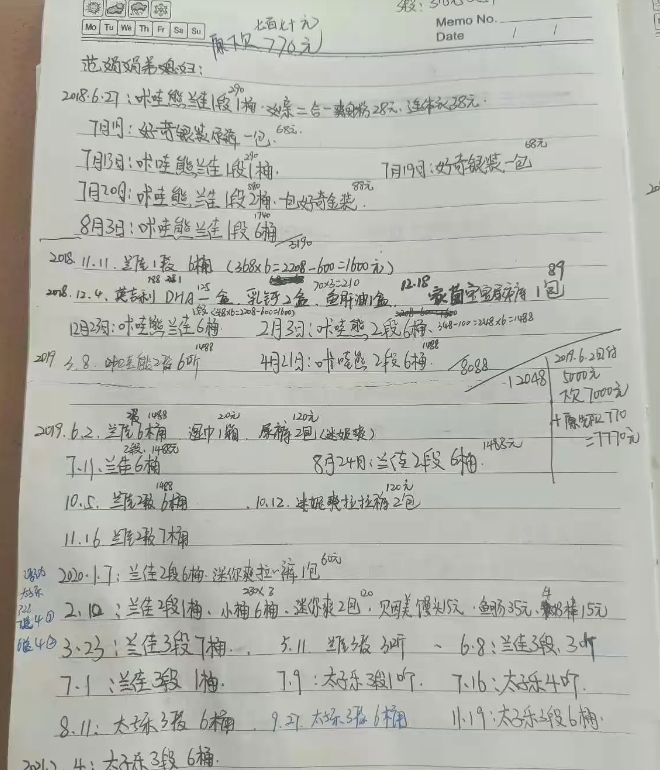 Mo Tu We Th Fr Sa Su
Memo No.
Date / /
七百七十元
原下欠 770元
2018.6.27: 咔哇熊兰佳1段1桶 290 二合一 28元. 连体衣38元.
7月1日: 好奇银装尿裤一包. 68元
7月13日: 咔哇熊兰佳1段1桶. 290
7月19日: 好奇银装一包 68元
7月20日: 咔哇熊兰佳1段2桶. 580 一包好奇金装. 88元
8月3日: 咔哇熊兰佳1段6桶 1740
3190
2018. 11.11. 兰佳1段 6桶 (368x6=2208-600=1600元)
2018. 12.4. DHA一盒 125 乳钙2盒. 鱼肝油1盒. 70x3=210 12.18 1包 89
1段(368x6=2208-600=1600)
12月23日: 咔哇熊兰佳6桶 2月3日: 咔哇熊2段6桶. 348-100=248x6=1488
2019 3.8. 咔哇熊2段6听 1488 4月21日: 咔哇熊2段6桶. 1488 8088
12048
2019.6.2日付
5000元
欠7000元
+原先欠770
=7770元
2019.6.2. 兰佳6桶 2段 1488 湿巾1箱 20元 尿裤2包(迷妮爽) 120元
7.11: 兰佳6桶 2段. 1488元 8月24日: 兰佳2段6桶. 1488元
10.5. 兰佳2段6桶 1488 10.12. 迷妮爽拉拉裤2包 120元
11.16 兰佳2段7桶
2020.1.7: 兰佳2段6桶. 迷你爽拉拉裤1包 60元
2.12: 兰佳2段1桶、小桶6桶、迷你爽2包 120. 贝因美馒头15元. 鱼肠35元. 15元
3.23: 兰佳3段7桶. 5.11 兰佳3段3听 6.8: 兰佳3段. 3听
7.1: 兰佳3段1桶. 7.9: 太子乐3段1听. 7.16: 太子乐4听.
8.11: 太子乐3段6桶. 9.27. 太子乐3段6桶 11.19: 太子乐3段6桶.
2021.2.4: 太子乐3段6桶.